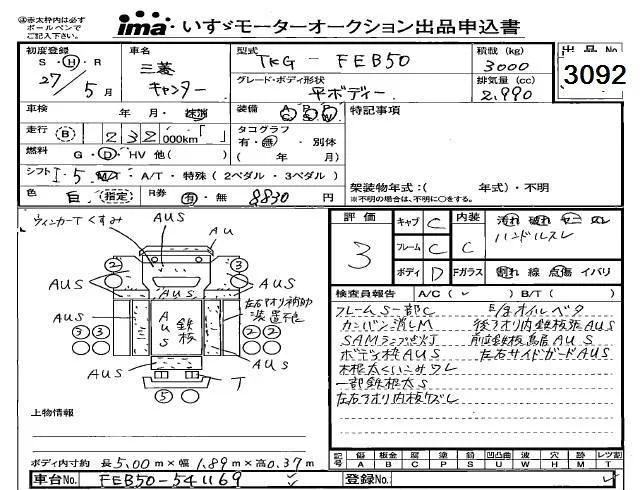 赤太枠内は必ず
ボールペンで
ご記入下さい。
ima いすゞモーターオークション出品申込書
初度登録 車名 型式 積載(kg) 出品No
S・H・R 三菱 TKG - FEB50 3000 3092
27/5月 キャンター グレード・ボディ形状 排気量(cc)
平ボディー 2,990
車検 年 月・抹消 装備 特記事項
走行 B 232 000km「 」 タコグラフ
有・無・別体
燃料 G・D・HV 他( ) ( 年 月)
シフト I・5 M/T A/T・特殊(2ペダル・3ペダル) 架装物年式:( 年式)・不明
色 白 (指定) R券 有・無 8830円 ※不明の場合は、不明に○をする。
ウィンカーTくすみ AUS AU
② ③
AUS AUS
左右アオリ補助
装置不良
AUS
③③ AUS 鉄板 AUS
AUS T
⑤
評価 キャブ C 内装 汚れ 破れ ヤニ スレ
3 フレーム C C ハンドルスレ
ボディ D Fガラス 割れ 線 点傷 イバリ
検査員報告 A/C( ✓ ) B/T( )
フレームS一部C E/gオイルベタ
カンバン消しM 後アオリ内鉄板張AUS
SAMランプ点灯 前立鉄板鳥居AUS
ボデー枠AUS 左右サイドガードAUS
木根太くいこみワレ
一部鉄根太S
左右アオリ内板ワズレ
上物情報
記号 傷 板金 腐 塗 錆 凹凸曲 波 穴 外 レツ割
A B C P S U W H M T
ボディ内寸約 長5.00m×幅1.89m×高0.37m
車台No. FEB50-541169 登録No.